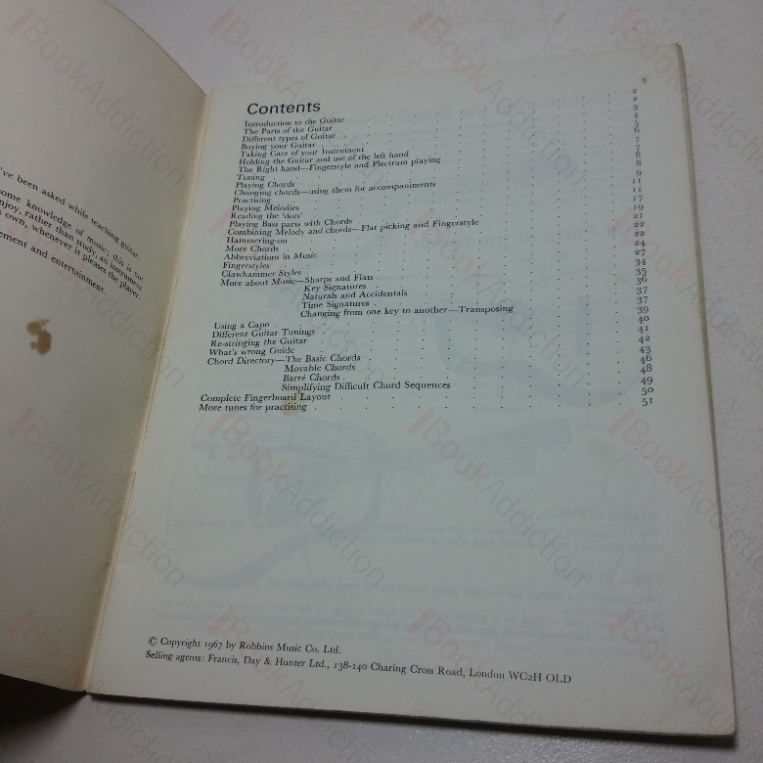 've been asked while teaching guitar.
some knowledge of music; this is for
enjoy, rather than study, an instrument
own, whenever it pleases the player
ement and entertainment.
Contents
Introduction to the Guitar 2
The Parts of the Guitar 2
Different types of Guitar 3
Buying your Guitar 4
Taking Care of your Instrument 5
Holding the Guitar and use of the left hand 6
The Right hand—Fingerstyle and Plectrum playing 7
Tuning 7
Playing Chords 8
Changing chords—using them for accompaniments 8
Practising 9
Playing Melodies 11
Reading the 'dots' 11
Playing Bass parts with Chords 17
Combining Melody and chords—Flat picking and Fingerstyle 19
Hammering-on 21
More Chords 22
Abbreviations in Music 22
Fingerstyles 24
Clawhammer Styles 27
More about Music—Sharps and Flats 34
Key Signatures 35
Naturals and Accidentals 36
Time Signatures 37
Changing from one key to another—Transposing 37
Using a Capo 39
Different Guitar Tunings 40
Re-stringing the Guitar 41
What's wrong Guide 42
Chord Directory—The Basic Chords 43
Movable Chords 46
Barré Chords 48
Simplifying Difficult Chord Sequences 49
Complete Fingerboard Layout 50
More tunes for practising 51
© Copyright 1967 by Robbins Music Co. Ltd.
Selling agents: Francis, Day & Hunter Ltd., 138-140 Charing Cross Road, London WC2H OLD
BookAddiction